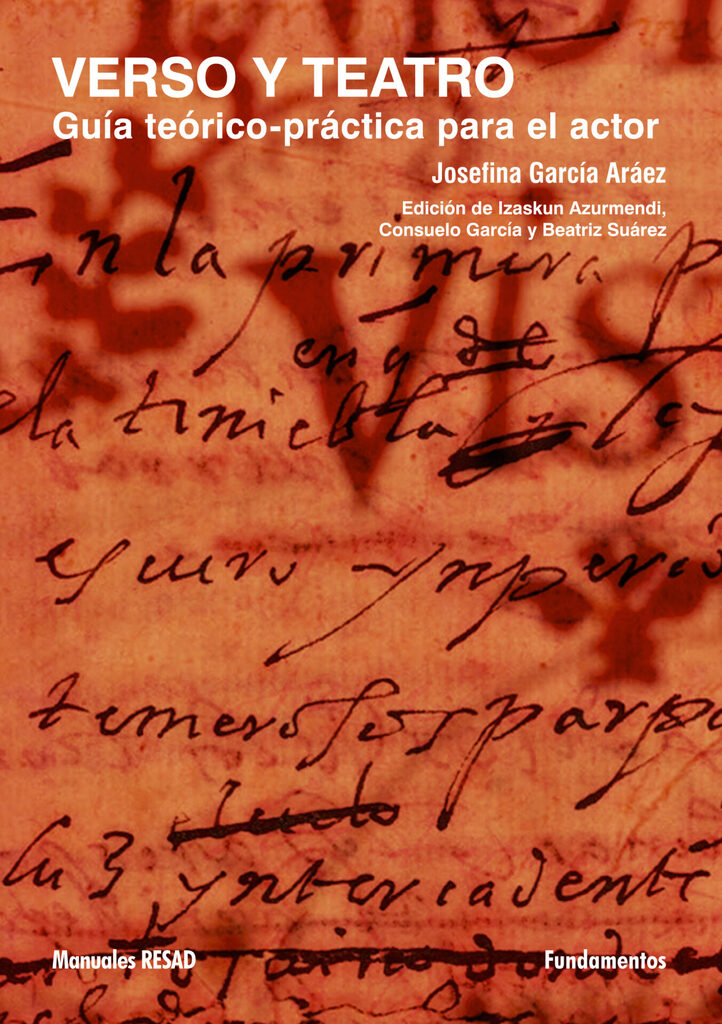 VERSO Y TEATRO
Guía teórico-práctica para el actor
Josefina García Aráez
Edición de Izaskun Azurmendi,
Consuelo García y Beatriz Suárez
En la primera p
en q de
la tiniebla
escuro ynperio
temerosos parp
luz yntercadente
Manuales RESAD
Fundamentos